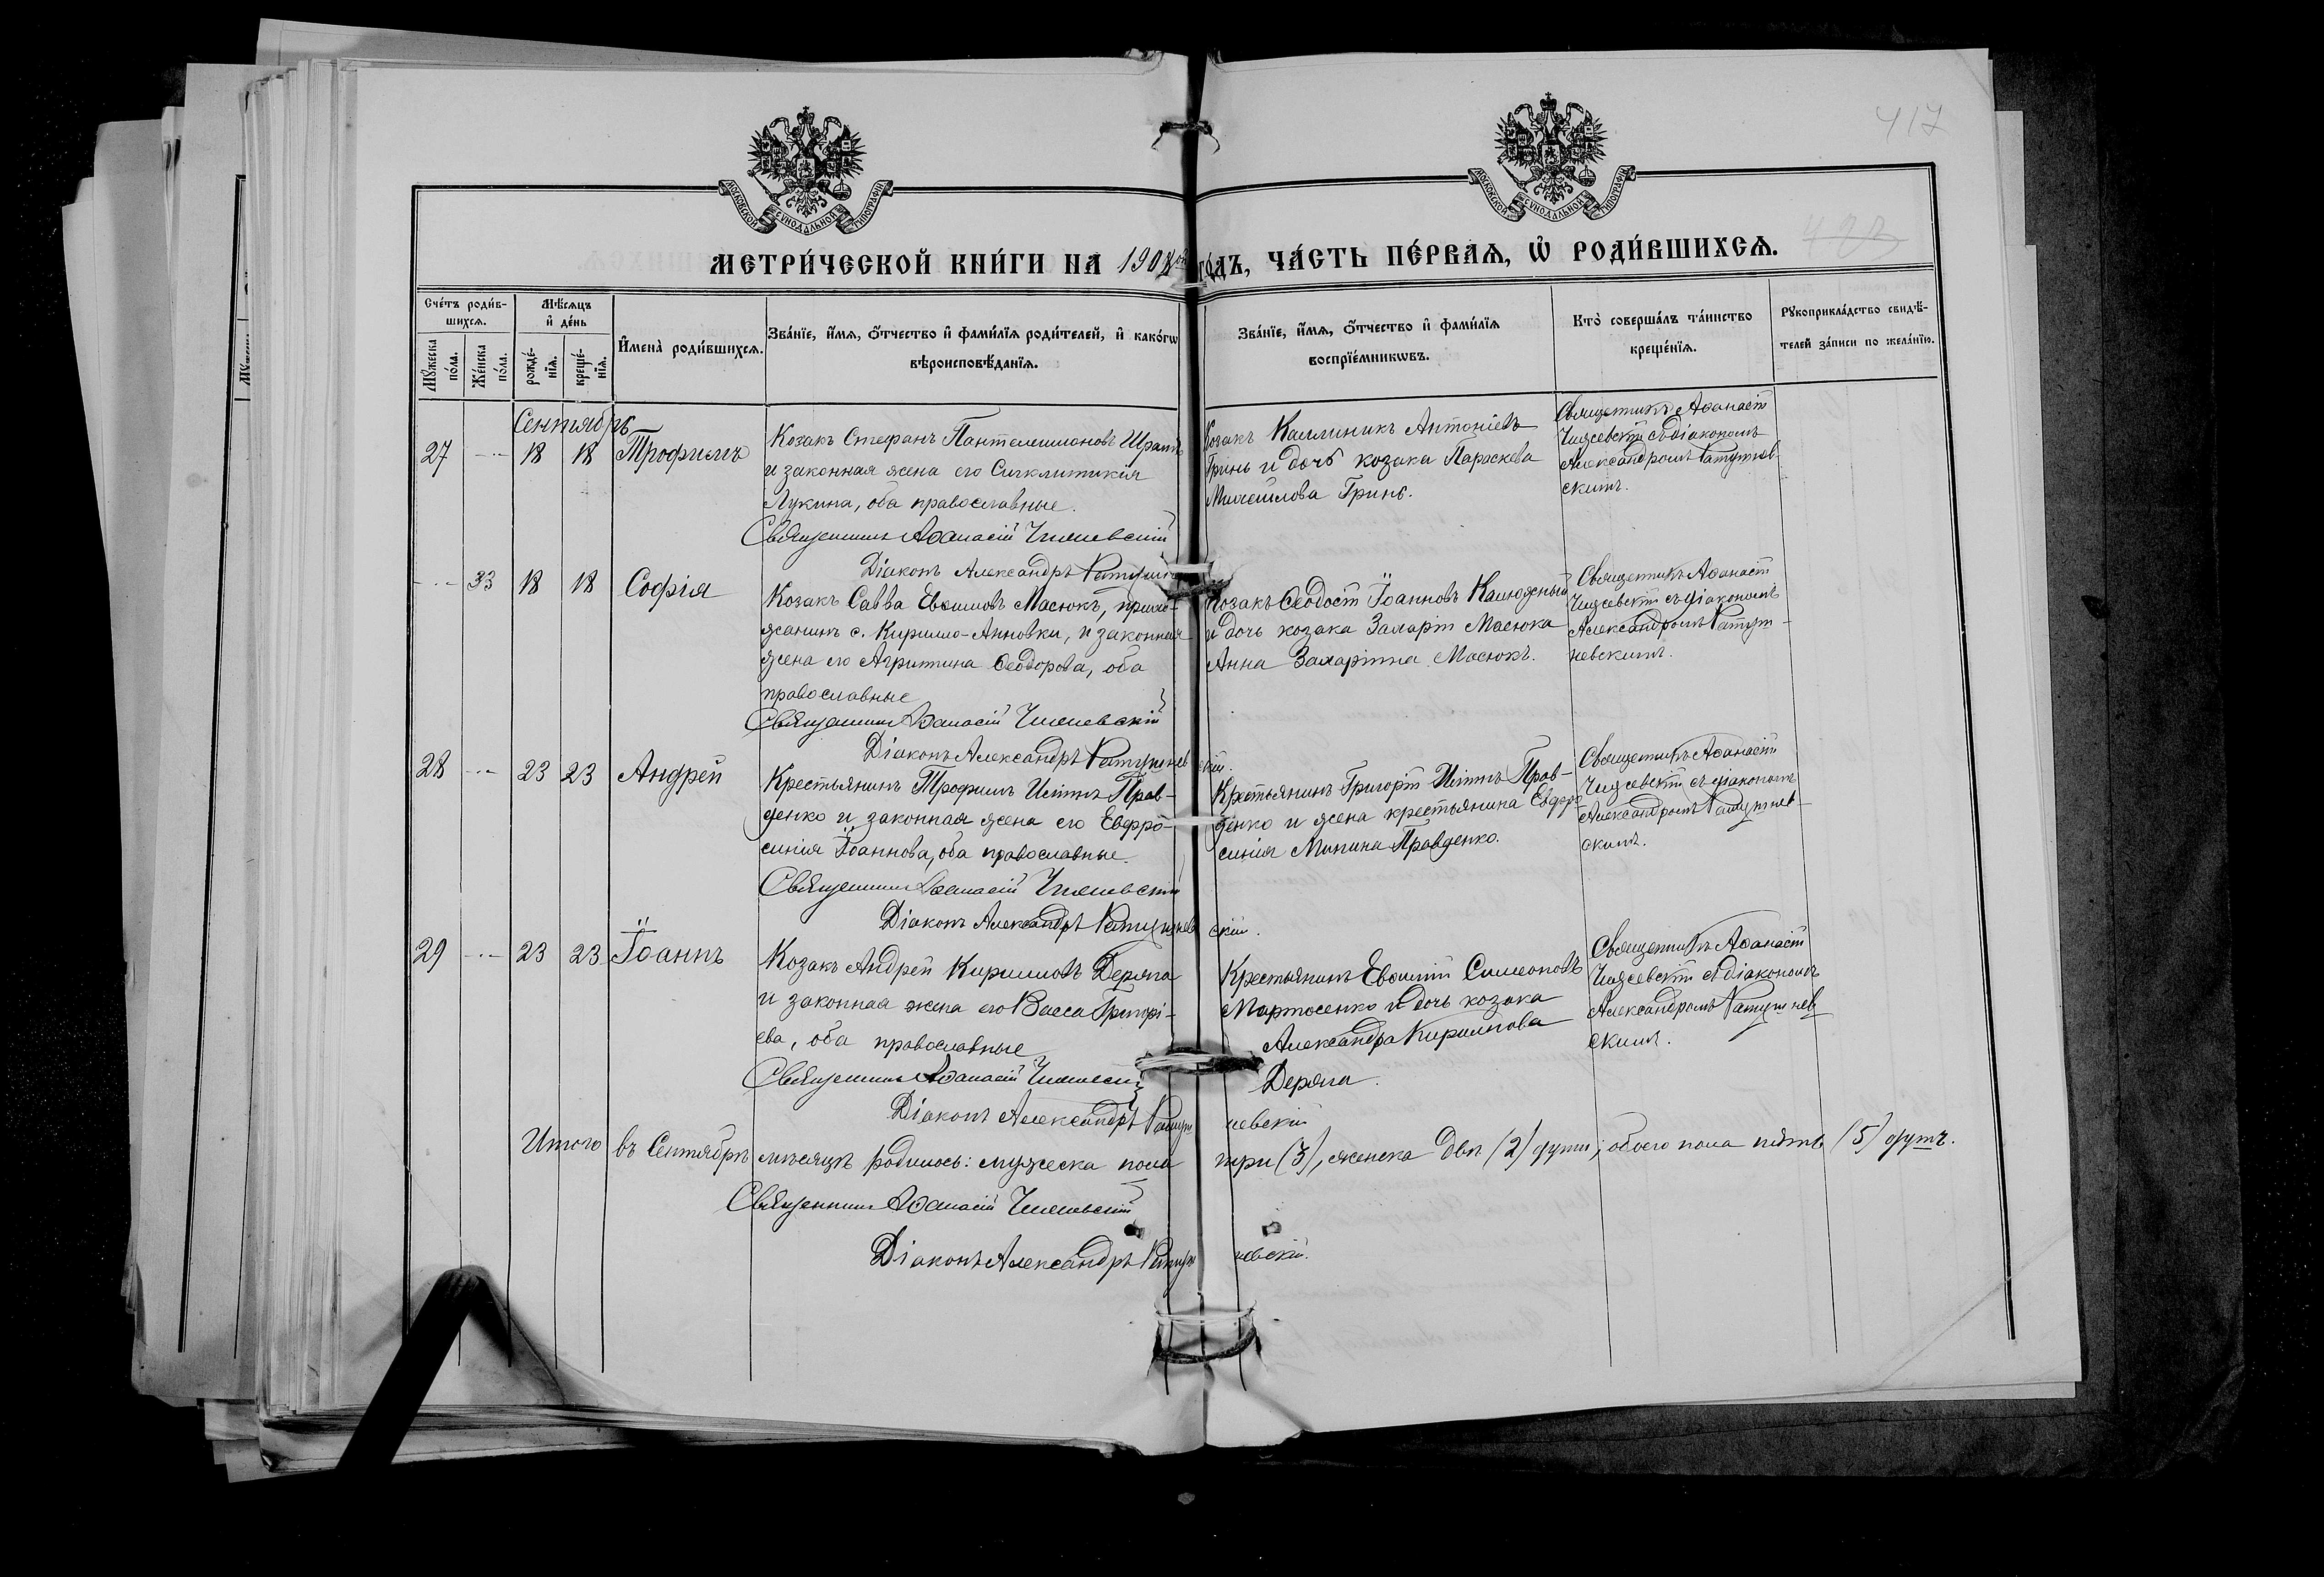 417
МОСКОВСКОЙ СѴНОДАЛЬНОЙ ТИПОГРАФІИ
МОСКОВСКОЙ СѴНОДАЛЬНОЙ ТИПОГРАФІИ
МЕТРИ́ЧЕСКОЙ КНИ́ГИ НА 190 го́дъ, ЧА́СТЬ ПЕ́РВАЯ, Ѡ҆ РОДИ́ВШИХСЯ.
Сче́тъ роди́в-
шихся.
Мꙋ́жеска по́ла.
Же́нска по́ла.
Мѣ́сяцъ
и҆ де́нь
рожде́-
нїя.
креще́-
нїя.
И҆мена̀ роди́вшихся.
Зва́нїе, и҆́мя, ѻ҆́тчество и҆ фами́лїя роди́телей, и҆ како́гѡ
вѣроисповѣ́данїя.
Зва́нїе, и҆́мя, ѻ҆́тчество и҆ фами́лїя
воспрїе́мникѡвъ.
Кто̀ соверша́лъ та́инство
креще́нїя.
Рꙋкоприкла́дство свидѣ́-
телей за́писи по жела́нїю.
Сентябрь
27 -··- 18 18 Трофимъ
Козакъ Стефанъ Пантелеимоновъ
и законная жена его Синклитикія
Лукина, оба православные.
Священникъ Аѳанасій
Діаконъ Александръ
Козакъ Каллиникъ Антоніевъ
Гринь и дочь козака Параскева
Гринь.
Священникъ Аѳанасій
съ діакономъ
Александромъ Ратушнев-
скимъ.
-··- 33 18 18 Софія
Козакъ Савва Евѳимовъ Масюкъ, прихо-
жанинъ с. Кирилло-Анновки, и законная
жена его Агриппина Ѳеодорова, оба
православные
Священникъ Аѳанасій
Діаконъ Александръ Ратушнев
скій.
Козакъ Ѳеодосій Іоанновъ Калюжный
и дочь козака Захарія Масюка
Анна Захаріина Масюкъ.
Священникъ Аѳанасій
съ діакономъ
Александромъ Ратуш-
невскимъ.
28 -··- 23 23 Андрей
Крестьянинъ Трофимъ Иліинъ Прав-
денко и законная жена его Евфро-
синія Іоаннова, оба православные.
Священникъ Аѳанасій
Діаконъ Александръ Ратушнев
скій.
Крестьянинъ Григорій Иліинъ Прав-
денко и жена крестьянина Евфро-
синія Минина Правденко.
Священникъ Аѳанасій
съ діакономъ
Александромъ Ратушнев-
скимъ.
29 -··- 23 23 Іоаннъ
Козакъ Андрей Кирилловъ Деряга
и законная жена его Васса Григорі-
ева, оба православные
Священникъ Аѳанасій
Діаконъ Александръ Ратуш
невскій
Крестьянинъ Евѳимій Симеоновъ
Мартосенко и дочь козака
Александра Кириллова
Деряга.
Священникъ Аѳанасій
съ діакономъ
Александромъ Ратушнев-
скимъ.
Итого въ Сентябрѣ мѣсяцѣ родилось: мужеска пола три (3), женска двѣ (2) души; обоего пола пять (5) душъ.
Священникъ Аѳанасій
Діаконъ Александръ Ратуш невскій.